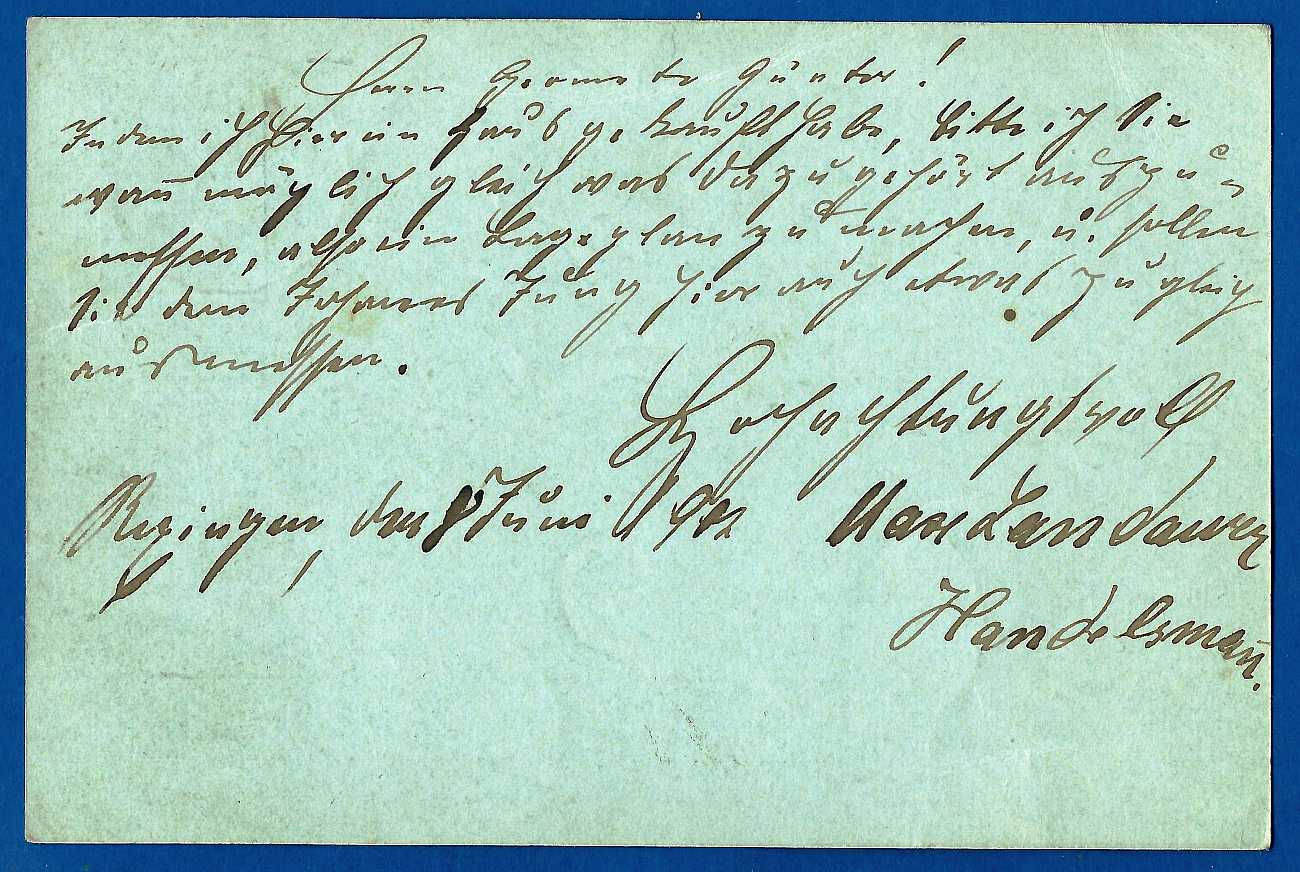 Herrn Geometer Günter!
Indem ich hier ein Haus gekauft habe, bitte ich Sie
wan̄ möglich gleich was dazu gehört auszu-
messen, also ein Lageplan zu machen, u. sollen
Sie dem Johannes Jung hier auch etwas zugleich
ausmessen.
Hochachtungsvoll
Rexingen, den 8 Juni 1902 Max Landauer
Handelsman̄.